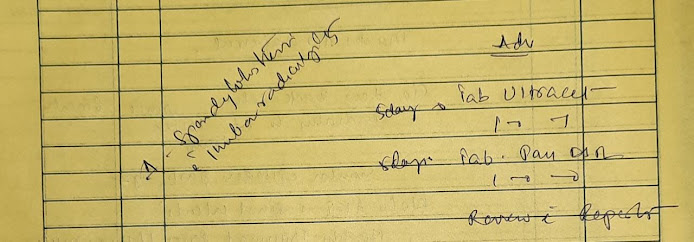 Adv
Δ - Spondylolisthesis
c̄ lumbar radiculopathy
5day → Tab Ultracet
1 → 1
5day. Tab. Pan DSR
1 → 0
Review c̄ Reports